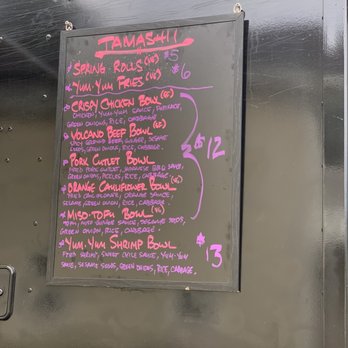 TAMASHII
SPRING ROLLS (VG) $5
YUM-YUM FRIES (VG) $6
CRISPY CHICKEN BOWL (GF)
CHICKEN, YUM-YUM SAUCE, FURIKAKE,
GREEN ONIONS, RICE, CABBAGE
VOLCANO BEEF BOWL (GF)
SPICY GROUND BEEF, SESAME
SEEDS, GREEN ONION, RICE, CABBAGE.
$12
PORK CUTLET BOWL
FRIED PORK CUTLET, JAPANESE BBQ SAUCE,
GREEN ONIONS, PICKLES, RICE, CABBAGE
ORANGE CAULIFLOWER BOWL (VG)
FRIED CAULIFLOWER, ORANGE SAUCE,
SESAME, GREEN ONION, RICE, CABBAGE
MISO-TOFU BOWL (VG)
TOFU, MISO SAUCE, SESAME SEEDS,
GREEN ONION, RICE, CABBAGE
YUM-YUM SHRIMP BOWL $13
FRIED SHRIMP, SWEET CHILE SAUCE, YUM-YUM
SAUCE, SESAME SEEDS, GREEN ONIONS, RICE, CABBAGE.